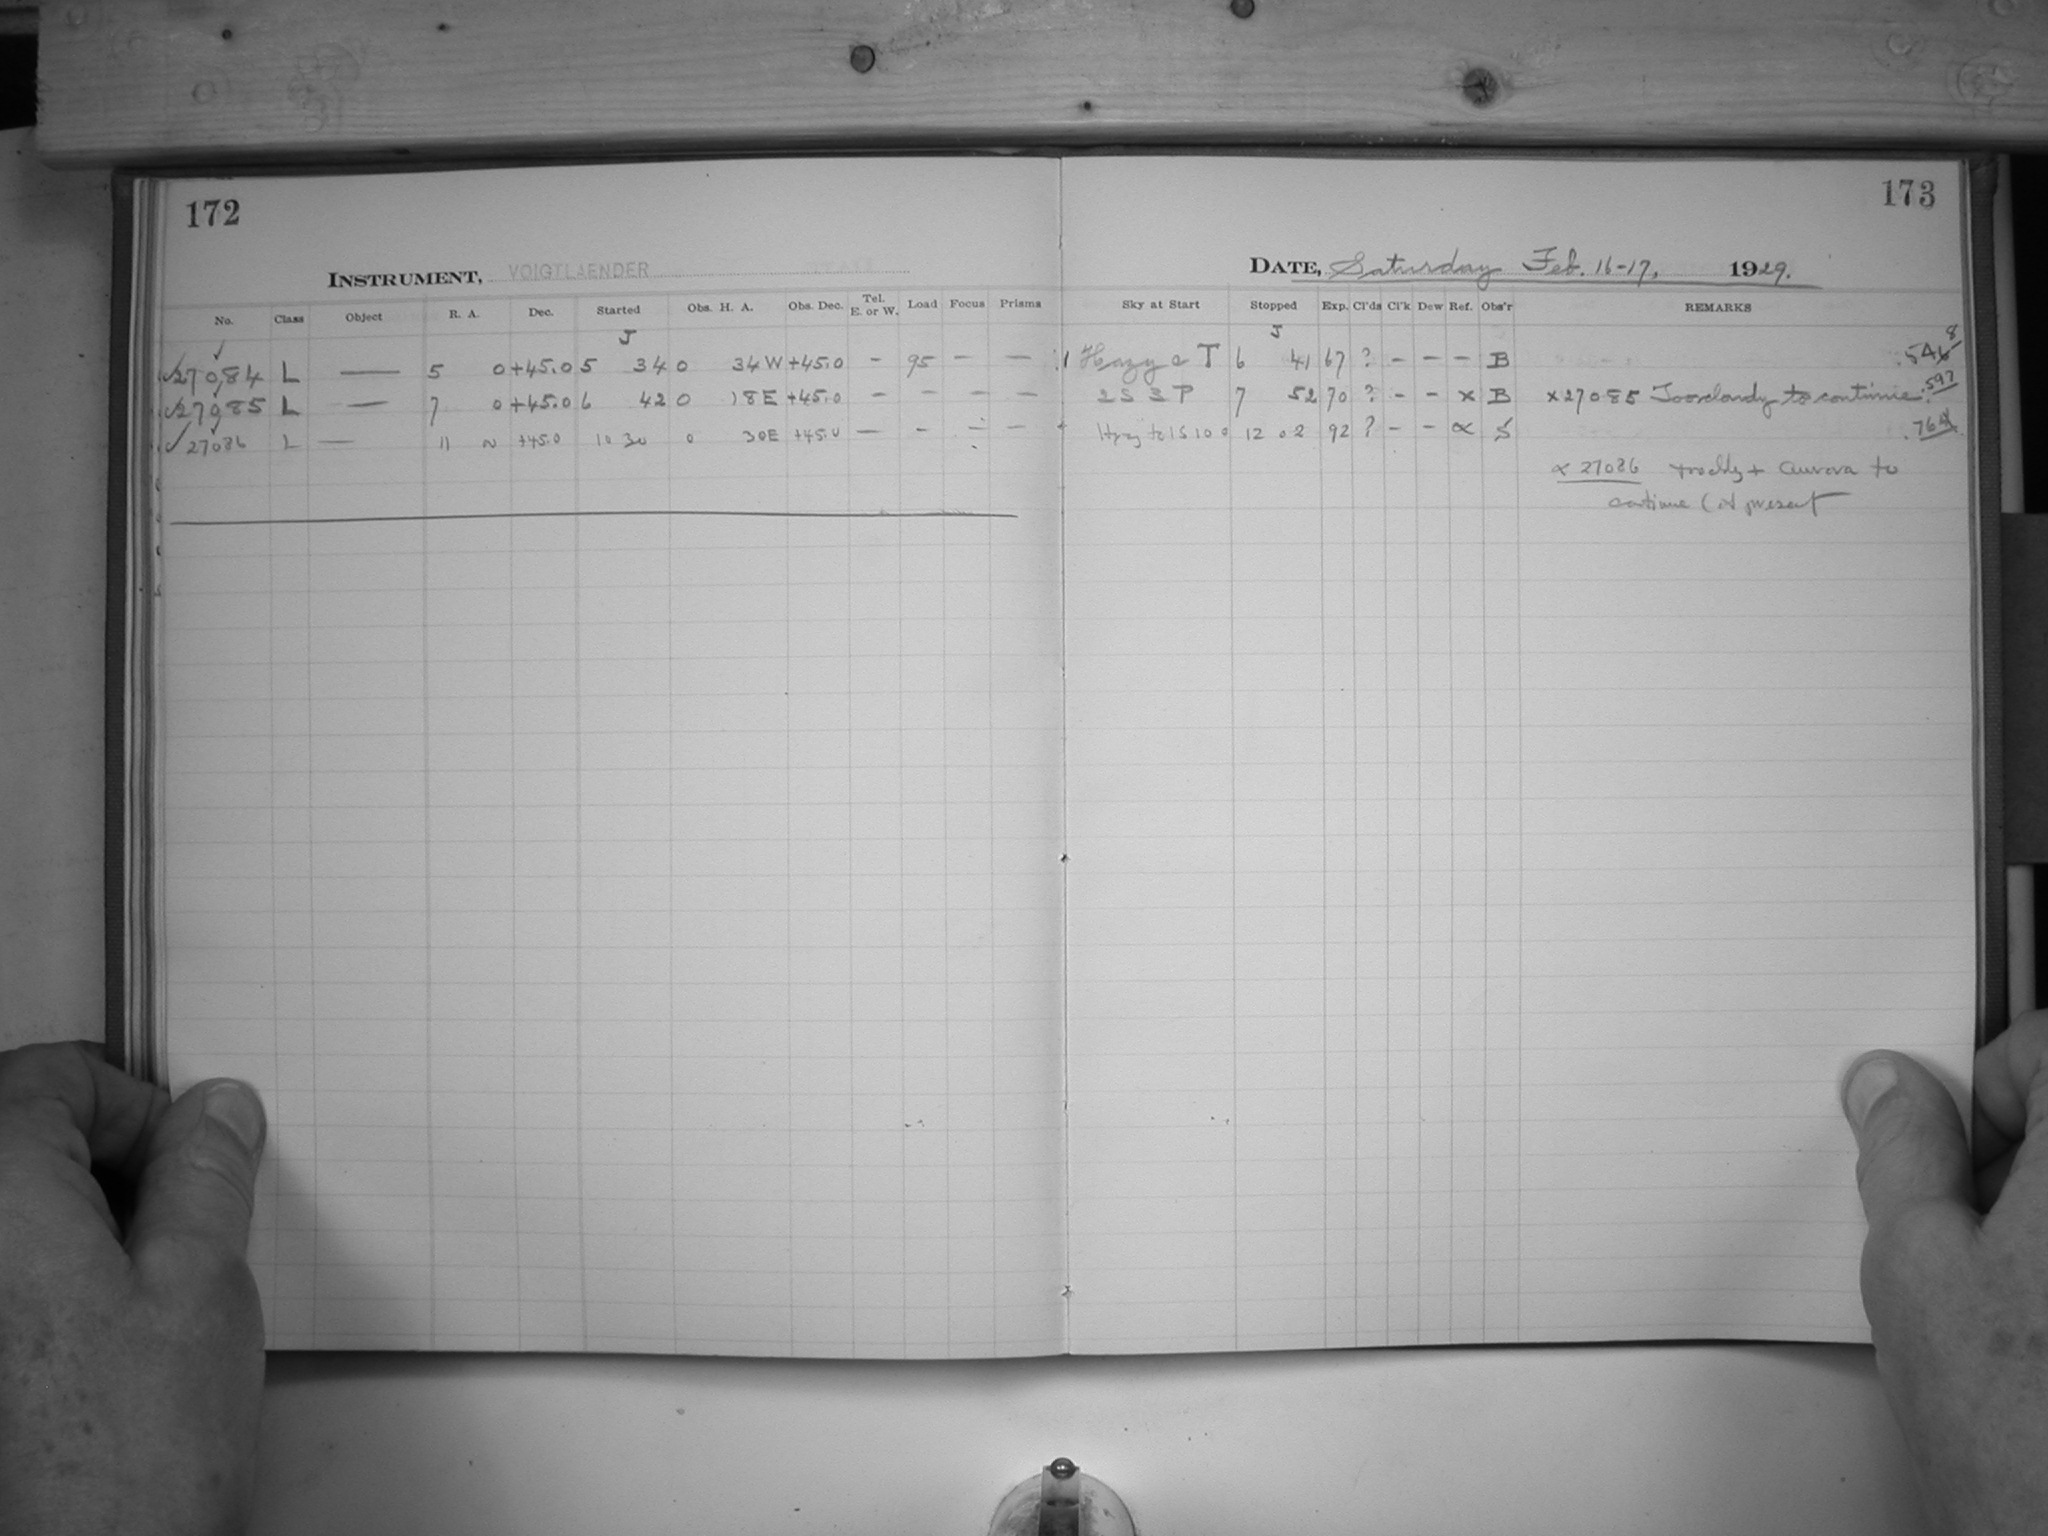 172
INSTRUMENT, VOIGTLAENDER
No. Class Object R. A. Dec. Started Obs. H. A. Obs. Dec. Tel. E. or W. Load Focus Prisms
J
✓27084 L — 5 0 +45.0 5 34 0 34W +45.0 - 95 - -
✓27085 L — 7 0 +45.0 6 42 0 18E +45.0 - - - -
✓27086 L — 11 +45.0 10 30 0 30E +45.0 - - - -
173
DATE, Saturday Feb. 16-17, 1929.
Sky at Start Stopped Exp. Cl'ds Cl'k Dew Ref. Obs'r REMARKS
J
Hazy c T 6 41 67 ? - - - B .546 8
2S 3 P 7 52 70 ? - - x B x27085 Too cloudy to continue. .597
Hazy to 12 02 92 ? - - x S .764
x 27086 + Aurora to
continue (at present